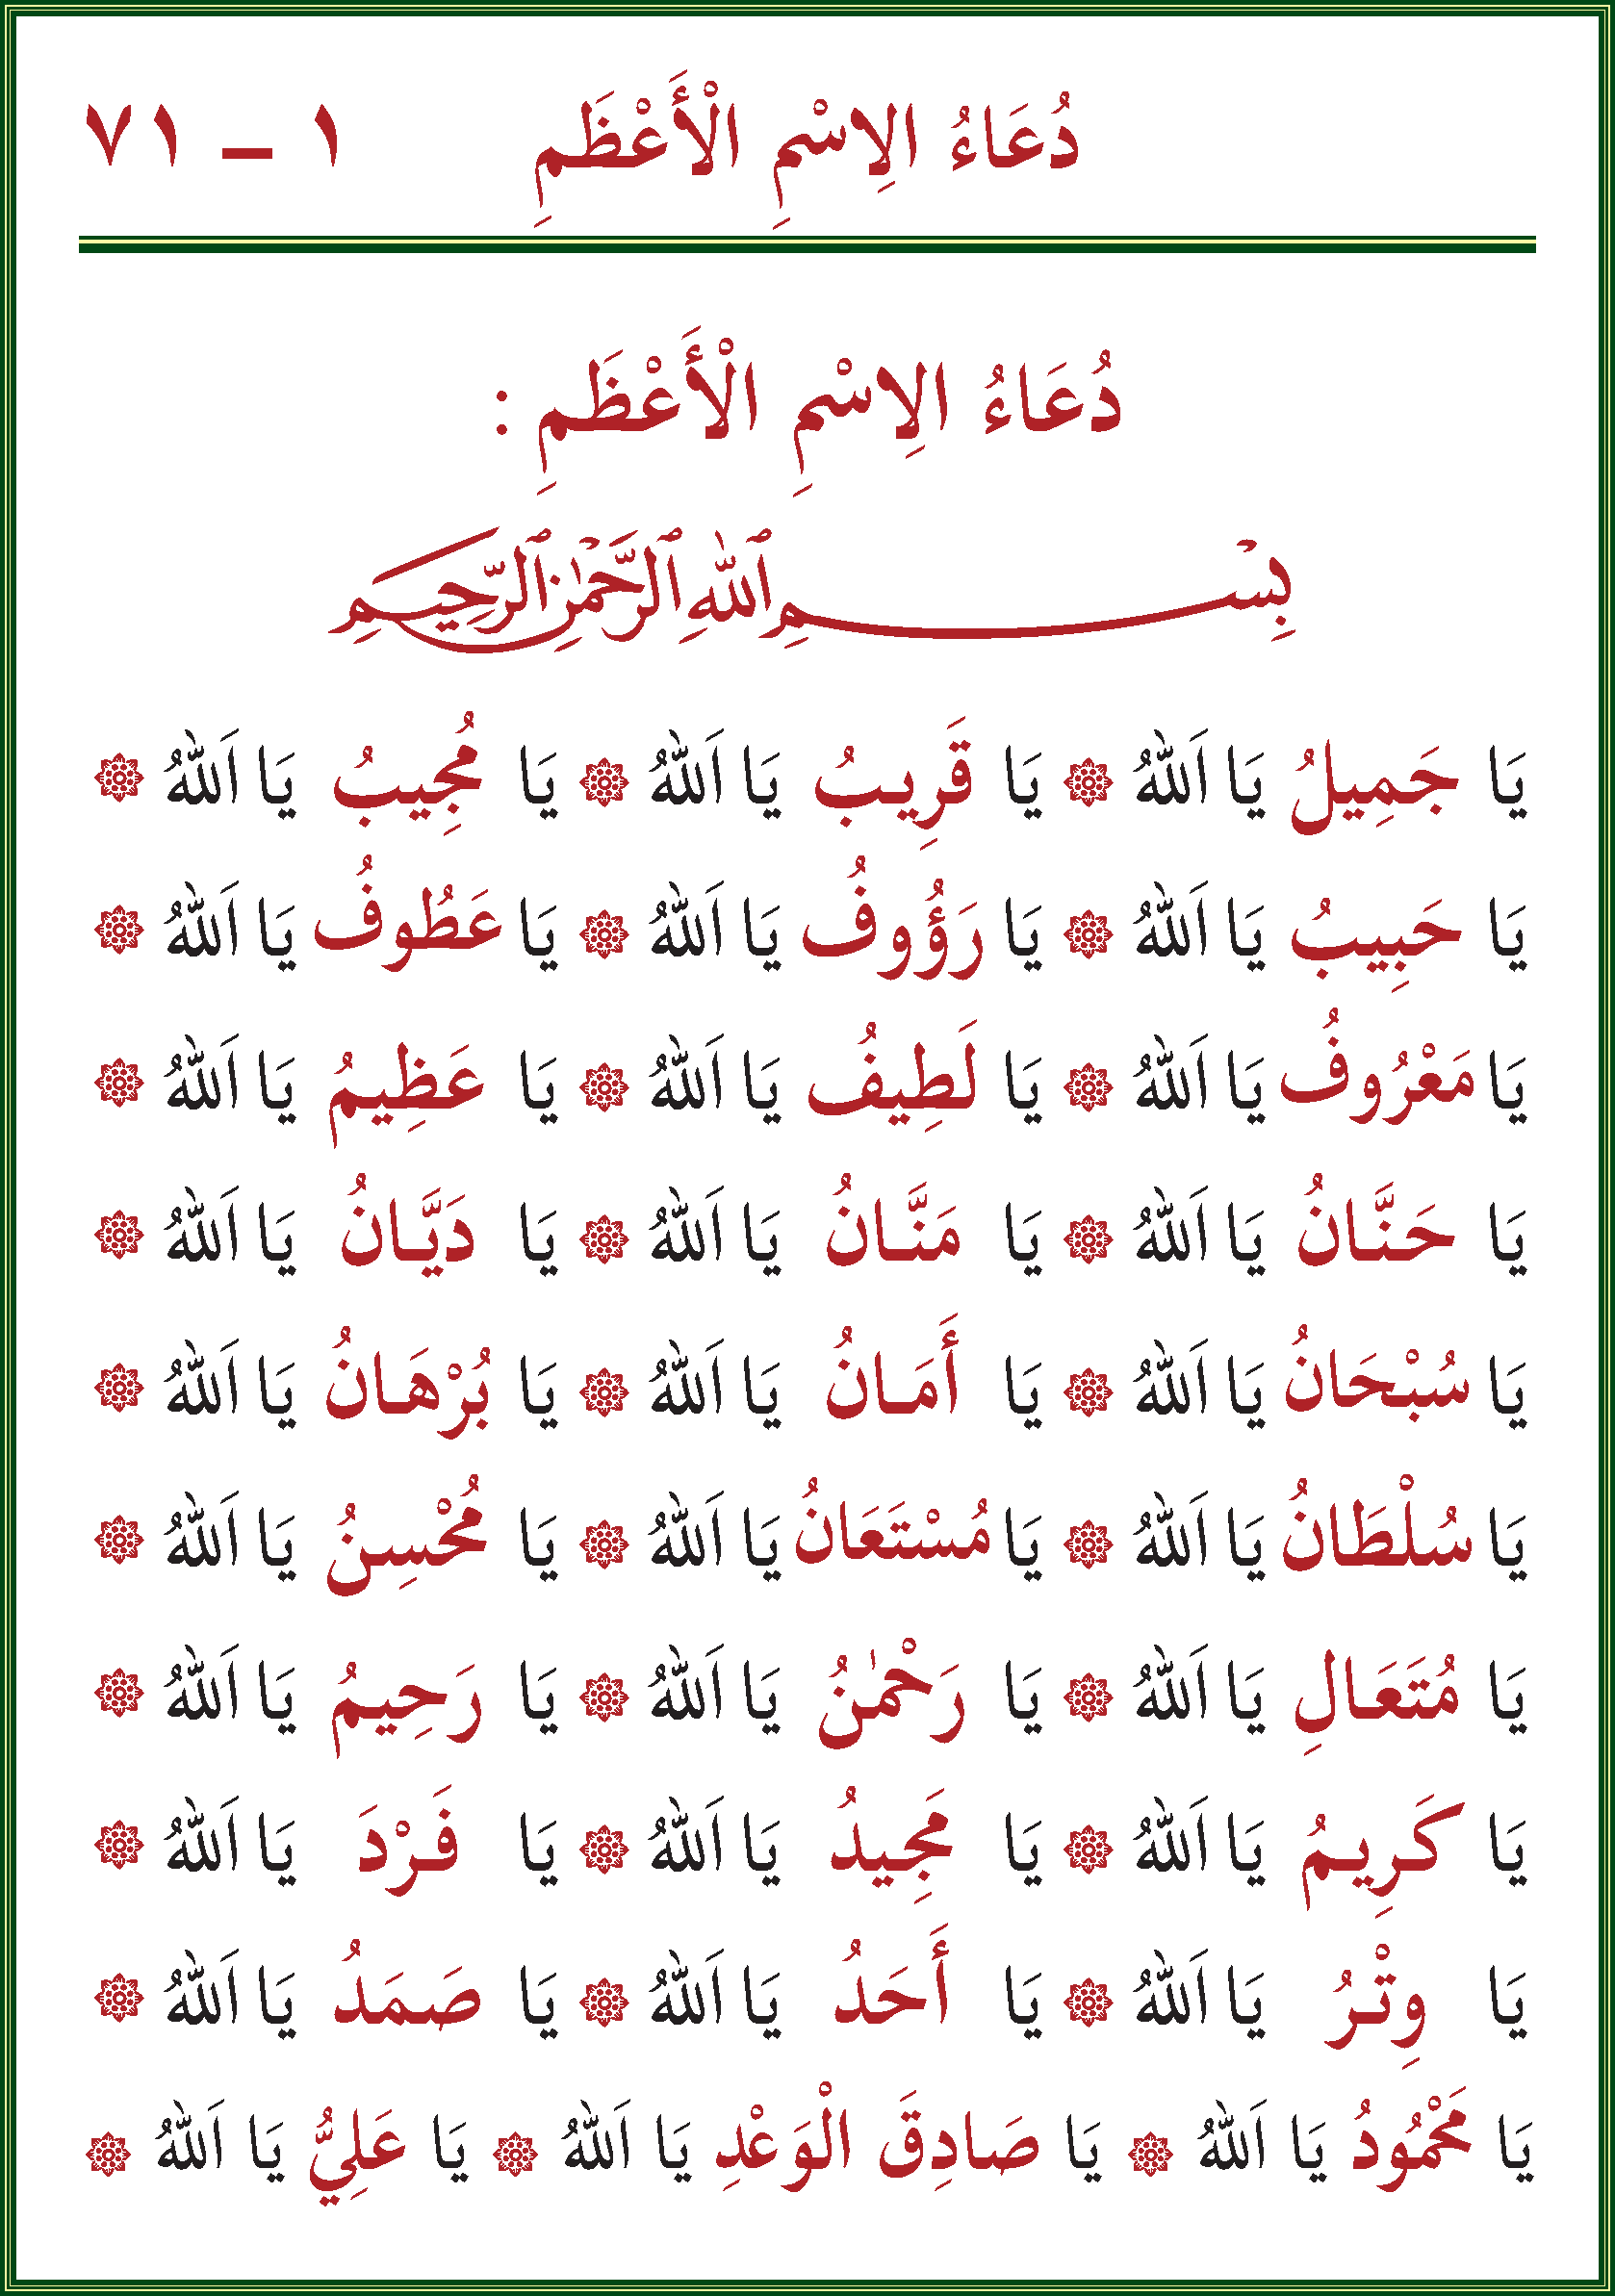 دُعَاءُ الِاسْمِ الْأَعْظَمِ ١ ـ ٧١
دُعَاءُ الِاسْمِ الْأَعْظَمِ :
بِسْمِ ٱللّٰهِ ٱلرَّحْمٰنِ ٱلرَّحِيمِ
يَا جَمِيلُ يَا اَللّٰهُ ۞ يَا قَرِيبُ يَا اَللّٰهُ ۞ يَا مُجِيبُ يَا اَللّٰهُ ۞
يَا حَبِيبُ يَا اَللّٰهُ ۞ يَا رَؤُوفُ يَا اَللّٰهُ ۞ يَا عَطُوفُ يَا اَللّٰهُ ۞
يَا مَعْرُوفُ يَا اَللّٰهُ ۞ يَا لَطِيفُ يَا اَللّٰهُ ۞ يَا عَظِيمُ يَا اَللّٰهُ ۞
يَا حَنَّانُ يَا اَللّٰهُ ۞ يَا مَنَّانُ يَا اَللّٰهُ ۞ يَا دَيَّانُ يَا اَللّٰهُ ۞
يَا سُبْحَانُ يَا اَللّٰهُ ۞ يَا أَمَانُ يَا اَللّٰهُ ۞ يَا بُرْهَانُ يَا اَللّٰهُ ۞
يَا سُلْطَانُ يَا اَللّٰهُ ۞ يَا مُسْتَعَانُ يَا اَللّٰهُ ۞ يَا مُحْسِنُ يَا اَللّٰهُ ۞
يَا مُتَعَالِ يَا اَللّٰهُ ۞ يَا رَحْمٰنُ يَا اَللّٰهُ ۞ يَا رَحِيمُ يَا اَللّٰهُ ۞
يَا كَرِيمُ يَا اَللّٰهُ ۞ يَا مَجِيدُ يَا اَللّٰهُ ۞ يَا فَرْدَ يَا اَللّٰهُ ۞
يَا وِتْرُ يَا اَللّٰهُ ۞ يَا أَحَدُ يَا اَللّٰهُ ۞ يَا صَمَدُ يَا اَللّٰهُ ۞
يَا مَحْمُودُ يَا اَللّٰهُ ۞ يَا صَادِقَ الْوَعْدِ يَا اَللّٰهُ ۞ يَا عَلِيُّ يَا اَللّٰهُ ۞